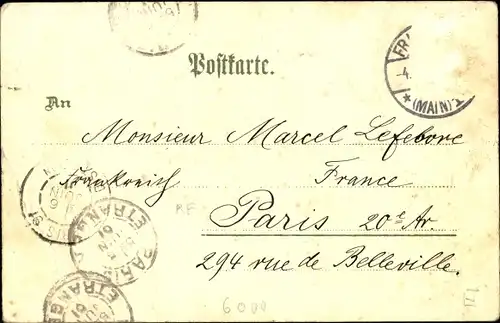 Postkarte.
An
Monsieur Marcel Lefebvre
Frankreich France
Paris 20e Ar.
294 rue de Belleville.
FR
(MAIN)
PARIS
ETRANGER
ETRANGE
RF
6000